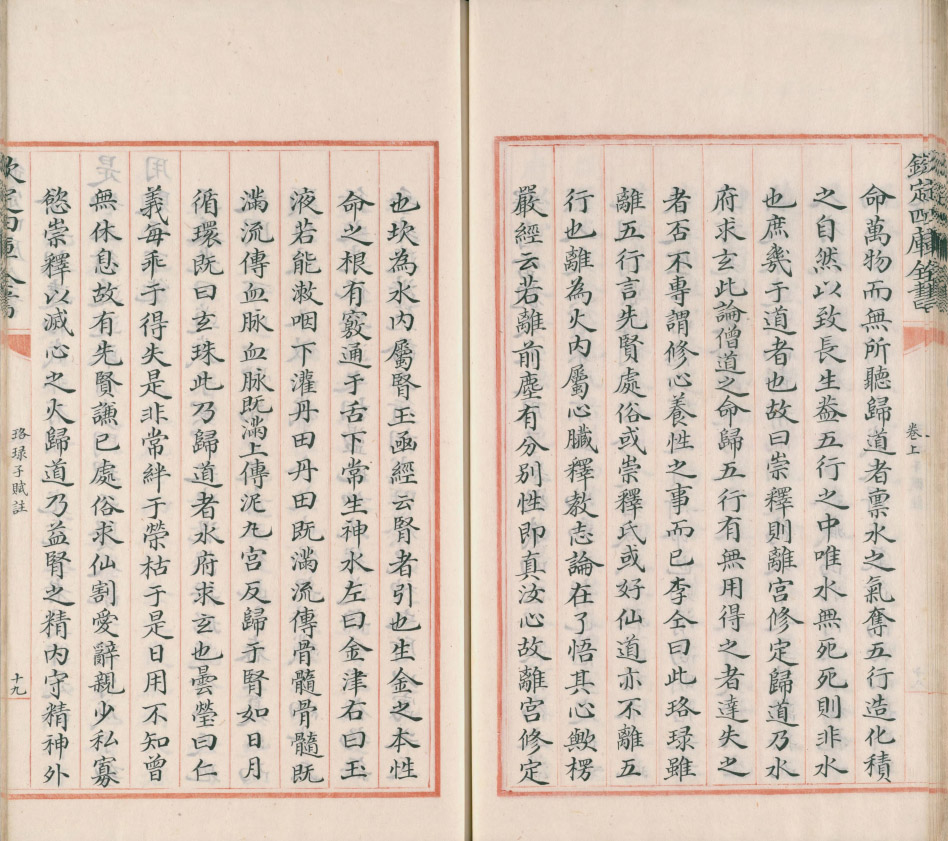 欽定四庫全書
卷上
命萬物而無所聽歸道者稟水之氣奪五行造化積
之自然以致長生葢五行之中唯水無死死則非水
也庶幾于道者也故曰崇釋則離宮修定歸道乃水
府求玄此論僧道之命歸五行有無用得之者達失之
者否不專謂修心養性之事而已李仝曰此珞琭雖
離五行言先賢處俗或崇釋氏或好仙道亦不離五
行也離為火內屬心臟釋教志論在了悟其心歟楞
嚴經云若離前塵有分別性即真汝心故離宮修定
也坎為水內屬腎玉函經云腎者引也生金之本性
命之根有竅通于舌下常生神水左曰金津右曰玉
液若能漱咽下灌丹田丹田既滿流傳骨髓骨髓既
滿流傳血脉血脉既滿上傳泥丸宮反歸于腎如日月
循環既曰玄珠此乃歸道者水府求玄也曇瑩曰仁
義每乖于得失是非常絆于榮枯于是日用不知曾
無休息故有先賢謙已處俗求仙割愛辭親少私寡
慾崇釋以滅心之火歸道乃益腎之精內守精神外
欽定四庫全書
珞琭子賦註
十九